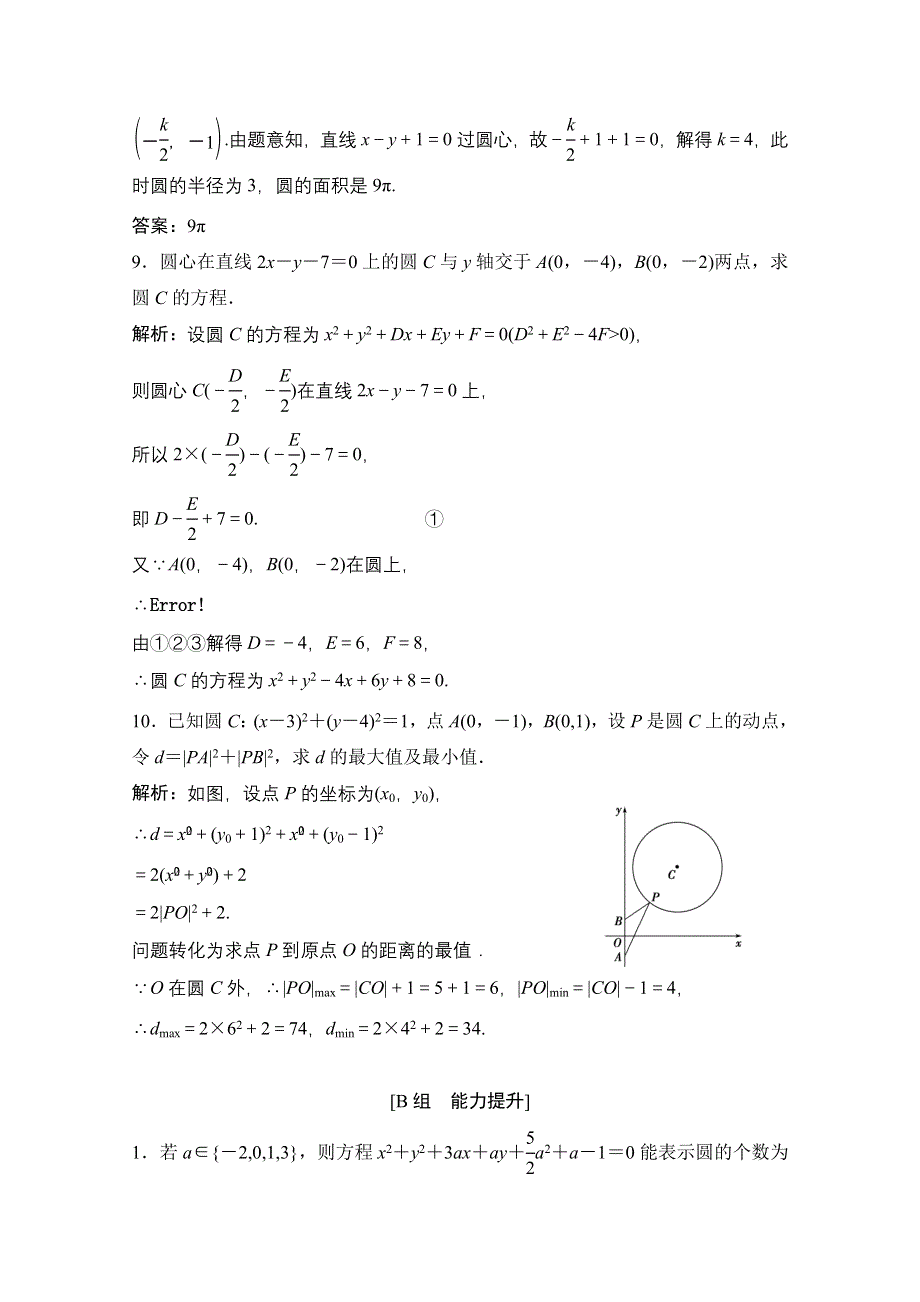 (−k/2，−1).由题意知，直线 x－y＋1＝0 过圆心，故－k/2＋1＋1＝0，解得 k＝4，此
时圆的半径为 3，圆的面积是 9π.
答案：9π
9．圆心在直线 2x－y－7＝0 上的圆 C 与 y 轴交于 A(0，－4)，B(0，－2)两点，求
圆 C 的方程．
解析：设圆 C 的方程为 x²＋y²＋Dx＋Ey＋F＝0(D²＋E²－4F>0)，
则圆心 C(－D/2，－E/2)在直线 2x－y－7＝0 上，
所以 2×(－D/2)－(－E/2)－7＝0，
即 D－E/2＋7＝0. ①
又∵A(0，－4)，B(0，－2)在圆上，
∴Error!
由①②③解得 D＝－4，E＝6，F＝8，
∴圆 C 的方程为 x²＋y²－4x＋6y＋8＝0.
10．已知圆 C：(x－3)²＋(y－4)²＝1，点 A(0，－1)，B(0,1)，设 P 是圆 C 上的动点，
令 d＝|PA|²＋|PB|²，求 d 的最大值及最小值．
解析：如图，设点 P 的坐标为(x₀，y₀)，
∴d＝x₀²＋(y₀＋1)²＋x₀²＋(y₀－1)²
＝2(x₀²＋y₀²)＋2
＝2|PO|²＋2.
问题转化为求点 P 到原点 O 的距离的最值．
∵O 在圆 C 外，∴|PO|max＝|CO|＋1＝5＋1＝6，|PO|min＝|CO|－1＝4，
∴dmax＝2×6²＋2＝74，dmin＝2×4²＋2＝34.
y
C
P
B
O
x
A
[B 组　能力提升]
1．若 a∈{－2,0,1,3}，则方程 x²＋y²＋3ax＋ay＋5/2a²＋a－1＝0 能表示圆的个数为